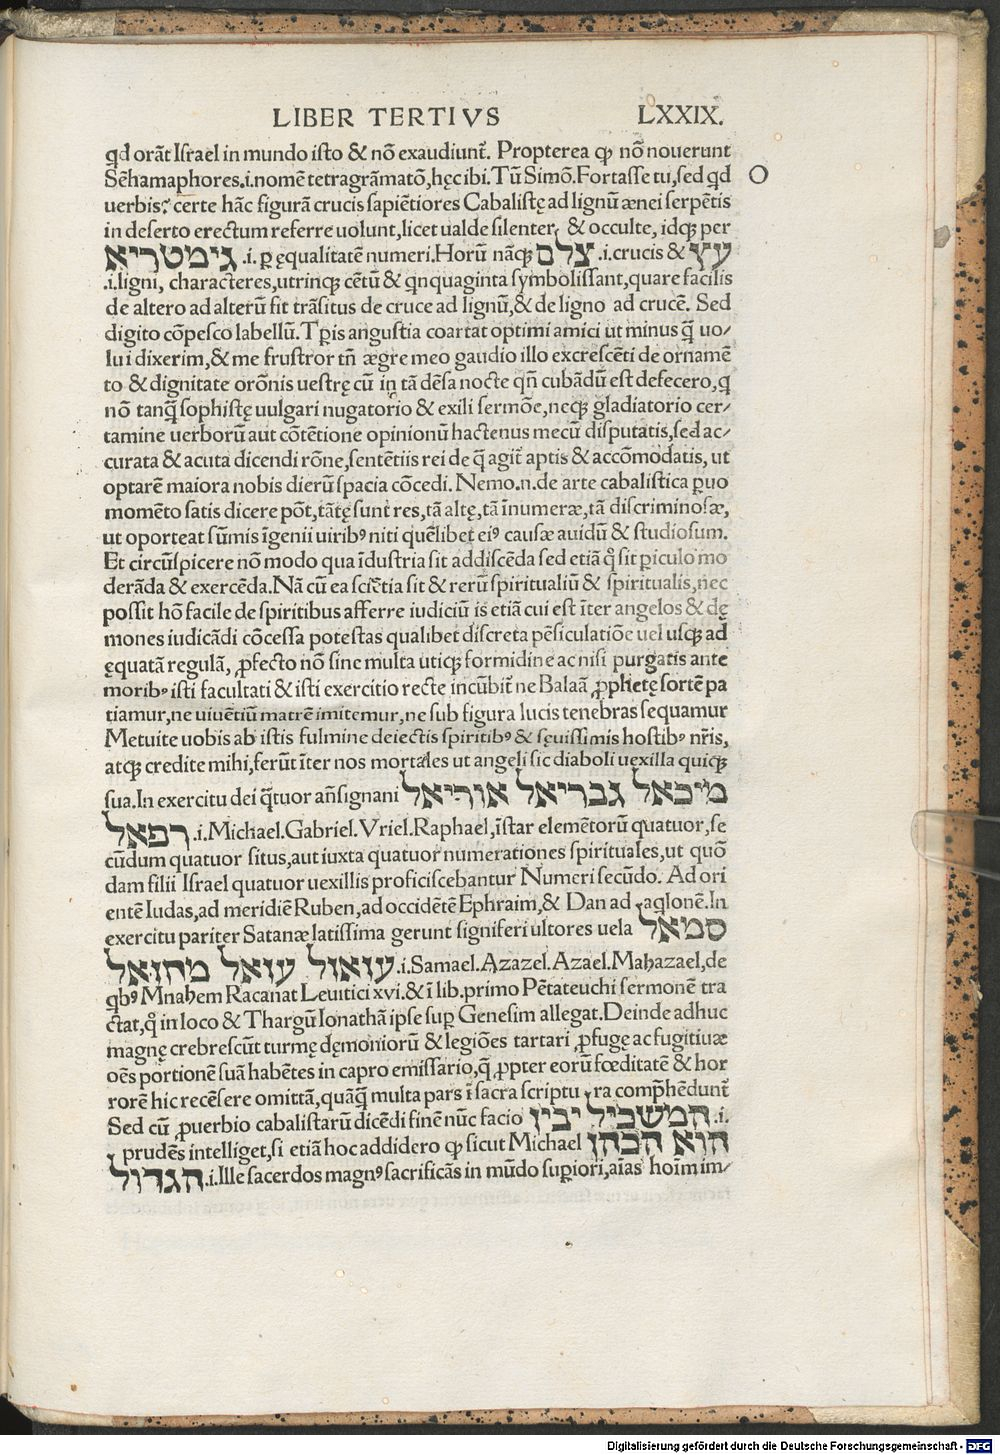 LIBER TERTIVS LXXIX.
qd orãt Israel in mundo isto & nõ exaudiunt̃. Propterea ꝙ nõ nouerunt
Sẽhamaphores.i.nomẽ tetragrãmatõ,hęc ibi.Tũ Simõ.Fortasse tu,sed qd O
uerbis? certe hãc figurã crucis sapiẽtiores Cabalistę ad lignũ ænei serpẽtis
in deserto erectum referre uolunt,licet ualde silenter, & occulte, idqꝫ per
גימטריא .i. ꝑ ęqualitatẽ numeri.Horũ nãqꝫ צלם .i.crucis & עץ
.i.ligni, characteres,utrinqꝫ cẽtũ & qnquaginta symbolissant,quare facilis
de altero ad alterũ fit trãsitus de cruce ad lignũ,& de ligno ad crucẽ. Sed
digito cõpesco labellũ.Tꝑis angustia coartat optimi amici ut minus q̃ uo/
lui dixerim,& me frustror tñ ægre meo gaudio illo excrescẽti de ornamẽ
to & dignitate orõnis uestrę cũ in tã dẽsa nocte qñ cubãdũ est defecero,q
nõ tanq̃ sophistę uulgari nugatorio & exili sermõe,neqꝫ gladiatorio cer/
tamine uerborũ aut cõtẽtione opinionũ hactenus mecũ disputatis,sed ac/
curata & acuta dicendi rõne,sentẽtiis rei de q̃ agit̃ aptis & accõmodatis, ut
optarẽ maiora nobis dierũ spacia cõcedi. Nemo.n.de arte cabalistica ꝑuo
momẽto satis dicere põt,tãtę sunt res,tã altę,tã ĩnumeræ,tã discriminosæ,
ut oporteat sũmis ĩgenii uiribꝰ niti quẽlibet eiꝰ causæ auidũ & studiosum.
Et circũspicere nõ modo qua ĩdustria sit addiscẽda sed etiã q̊ sit ꝑiculo mo
derãda & exercẽda. Nã cũ ea sciẽtia sit & rerũ spiritualiũ & spiritualis,nec
possit hõ facile de spiritibus afferre iudiciũ is etiã cui est ĩter angelos & dę
mones iudicãdi cõcessa potestas qualibet discreta pẽsiculatiõe uel usqꝫ ad
ęquatã regulã, ꝓfecto nõ sine multa utiqꝫ formidine ac nisi purgatis ante
moribꝰ isti facultati & isti exercitio recte incũbit̃ ne Balaã ꝓphetę sortẽ pa
tiamur,ne uiuẽtiũ matrẽ imitemur,ne sub figura lucis tenebras sequamur
Metuite uobis ab istis fulmine deiectis spiritibꝰ & sęuissimis hostibꝰ nr̃is,
atqꝫ credite mihi,ferũt ĩter nos mortales ut angeli sic diaboli uexilla quiqꝫ
sua.In exercitu dei q̃tuor añsignani מיכאל גבריאל אוריאל
רפאל .i.Michael.Gabriel.Vriel.Raphael,ĩstar elemẽtorũ quatuor,se
cũdum quatuor situs,aut iuxta quatuor numerationes spirituales,ut quõ
dam filii Israel quatuor uexillis proficiscebantur Numeri secũdo. Ad ori
entẽ Iudas,ad meridiẽ Ruben,ad occidẽtẽ Ephraim,& Dan ad aqlonẽ.In
exercitu pariter Satanæ latissima gerunt signiferi ultores uela סמאל
עזאזל עזאל מחזאל .i.Samael.Azazel.Azael.Mahazael,de
qbꝰ Mnahem Racanat Leuitici xvi.& ĩ lib.primo Pẽtateuchi sermonẽ tra
ctat,q̊ in loco & Thargũ Ionathã ipse suꝑ Genesim allegat.Deinde adhuc
magnę crebrescũt turmę dęmoniorũ & legiões tartari ꝓfugę ac fugitiuæ
oẽs portionẽ suã habẽtes in capro emissario,q̃ ꝓpter eorũ fœditatẽ & hor
rorẽ hic recẽsere omittã,quãq̃ multa pars ĩ sacra scriptura comp̃hẽdunt̃
Sed cũ ꝓuerbio cabalistarũ dicẽdi finẽ nũc facio המשכיל יבין .i.
prudẽs intelliget,si etiã hoc addidero ꝙ sicut Michael הוא הכהן
הגדול .i.Ille sacerdos magnꝰ sacrificãs in mũdo suꝑiori,aĩas hoĩm im/
Digitalisierung gefördert durch die Deutsche Forschungsgemeinschaft - DFG